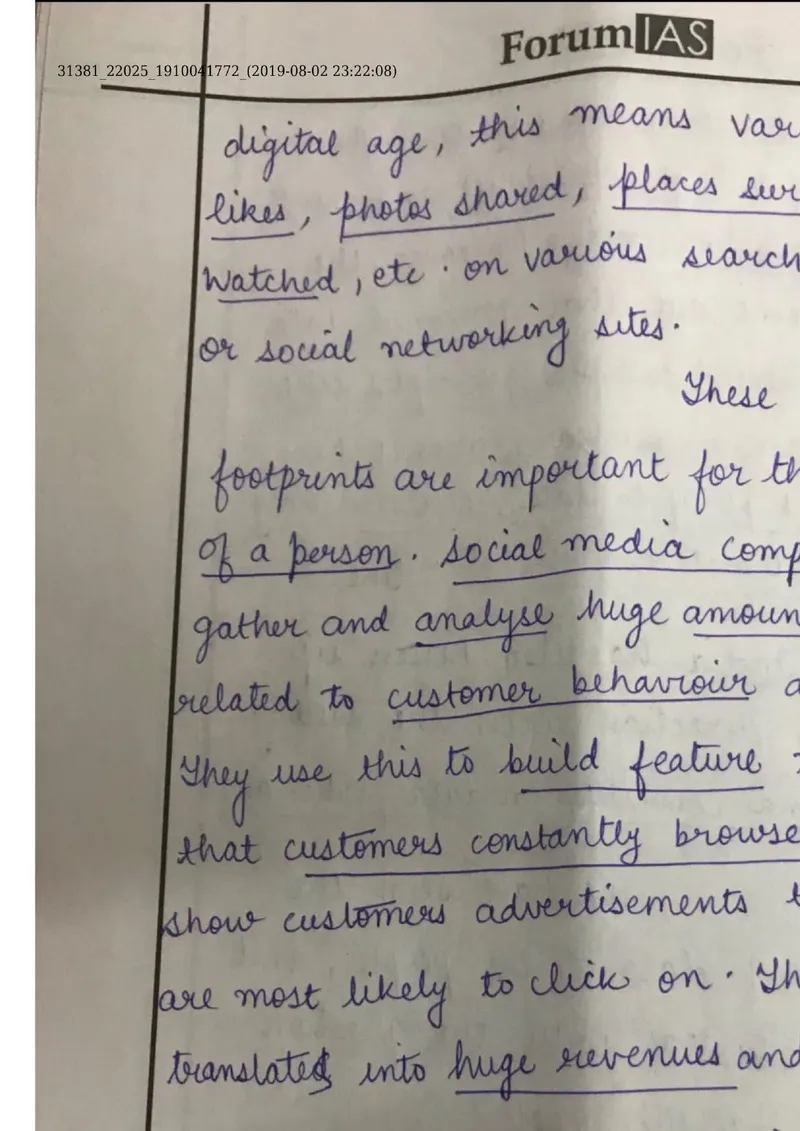 ForumIAS
31381_22025_1910041772_(2019-08-02 23:22:08)
digital age, this means var
likes, photos shared, places sur
watched, etc. on various search
or social networking sites.
These
footprints are important for th
of a person. Social media comp
gather and analyse huge amoun
related to customer behaviour a
They use this to build feature
that customers constantly browse
show customers advertisements t
are most likely to click on. Th
translates into huge revenues and